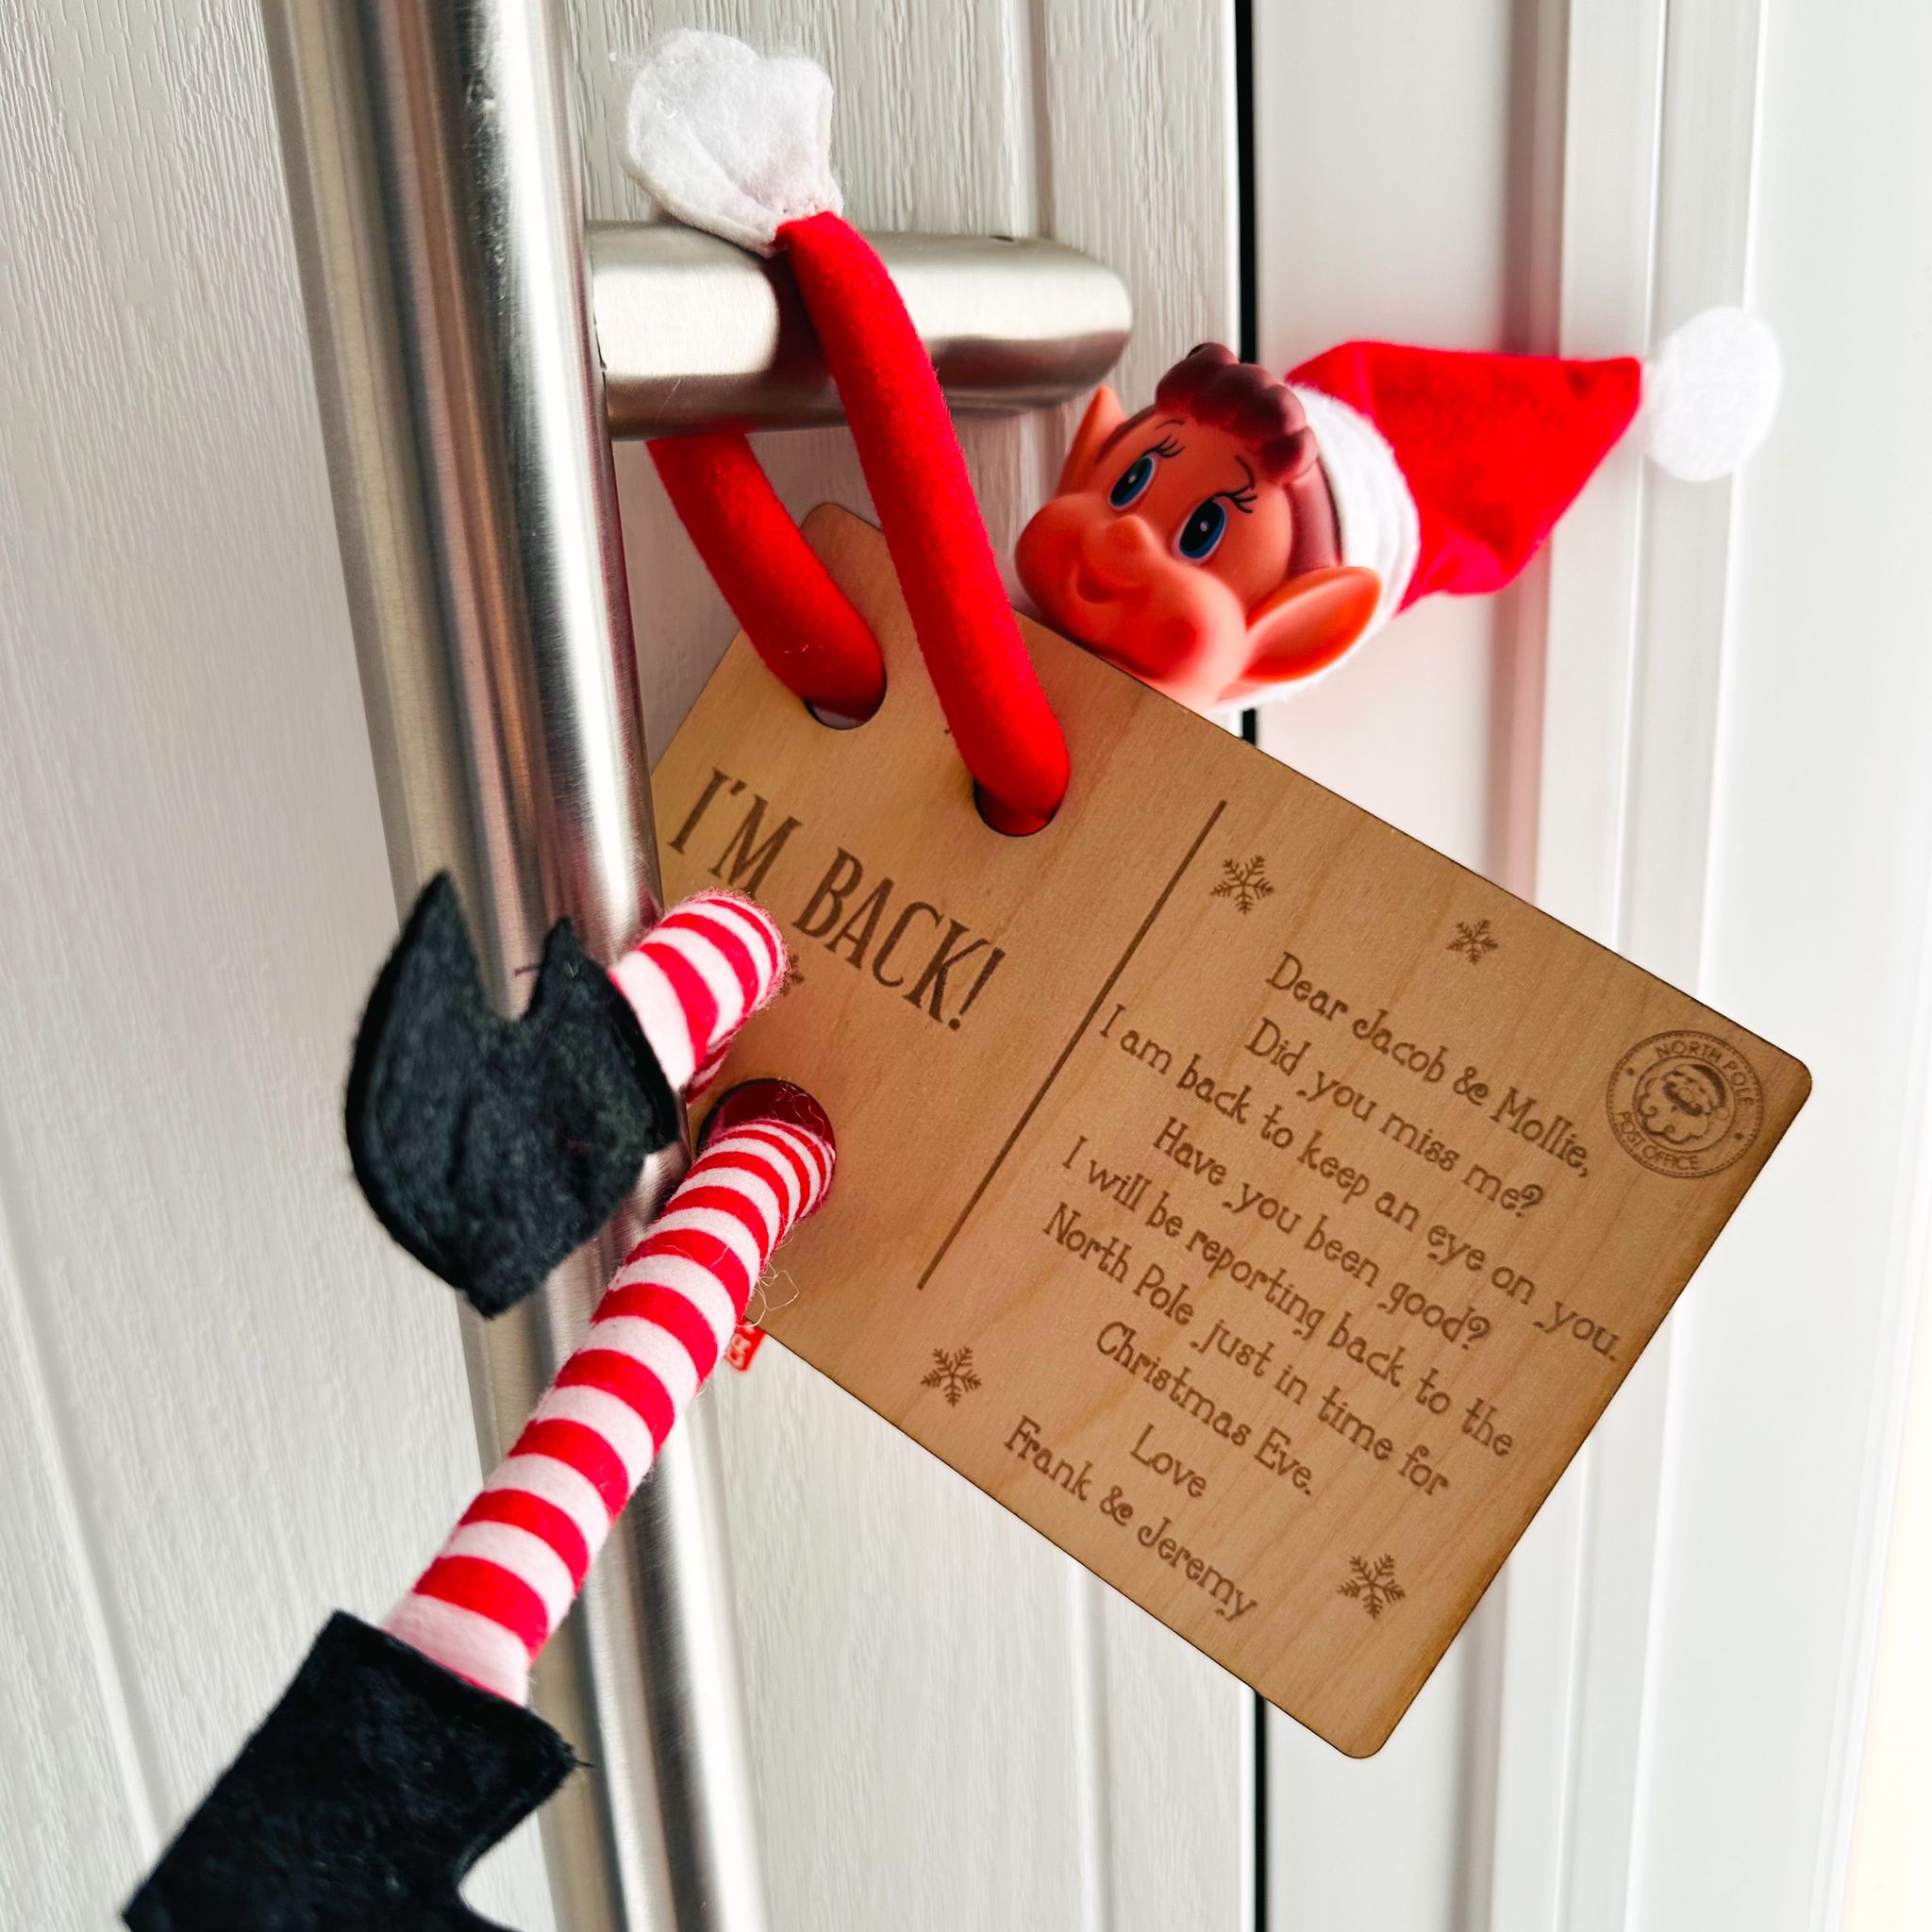 I'M BACK!
Dear Jacob & Mollie,
Did you miss me?
I am back to keep an eye on you.
Have you been good?
I will be reporting back to the
North Pole just in time for
Christmas Eve.
Love
Frank & Jeremy
NORTH POLE
POST OFFICE